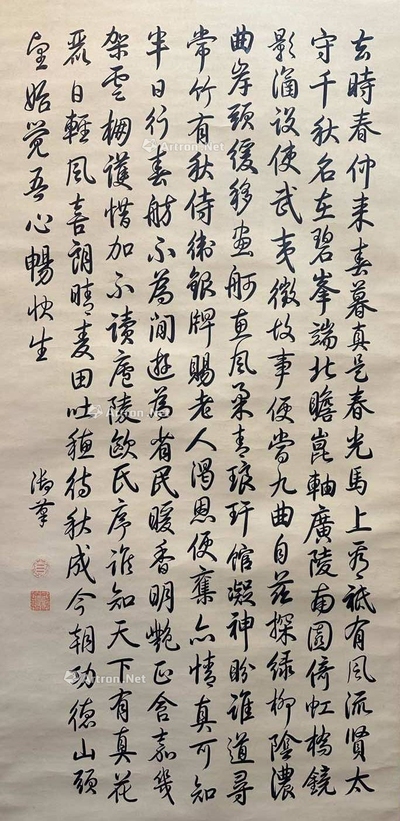 去時春仲来春暮真是春光馬上看祗有風流賢太
守千秋名在碧峯端北瞻崑軸廣陵南園倚虹橋鏡
影涵設使武夷徵故事便當九曲自茲探綠柳陰濃
曲岸頭緩移畫舸惠風柔青琅玕館凝神盼誰道尋
常竹有秋侍衛銀牌賜老人渴恩便奮亦情真可知
半日行春舫不為閒遊為省民暖香明艷正含嘉幾
架雲棚護惜加不讀廬陵歐氏序誰知天下有真花
麗日輕風喜朗晴麦田吐穗待秋成今朝功德山頭
望始覺吾心暢快生
御筆
Artron.Net
Artron.Net
Artron.Net
Artron.Net
Artron.Net